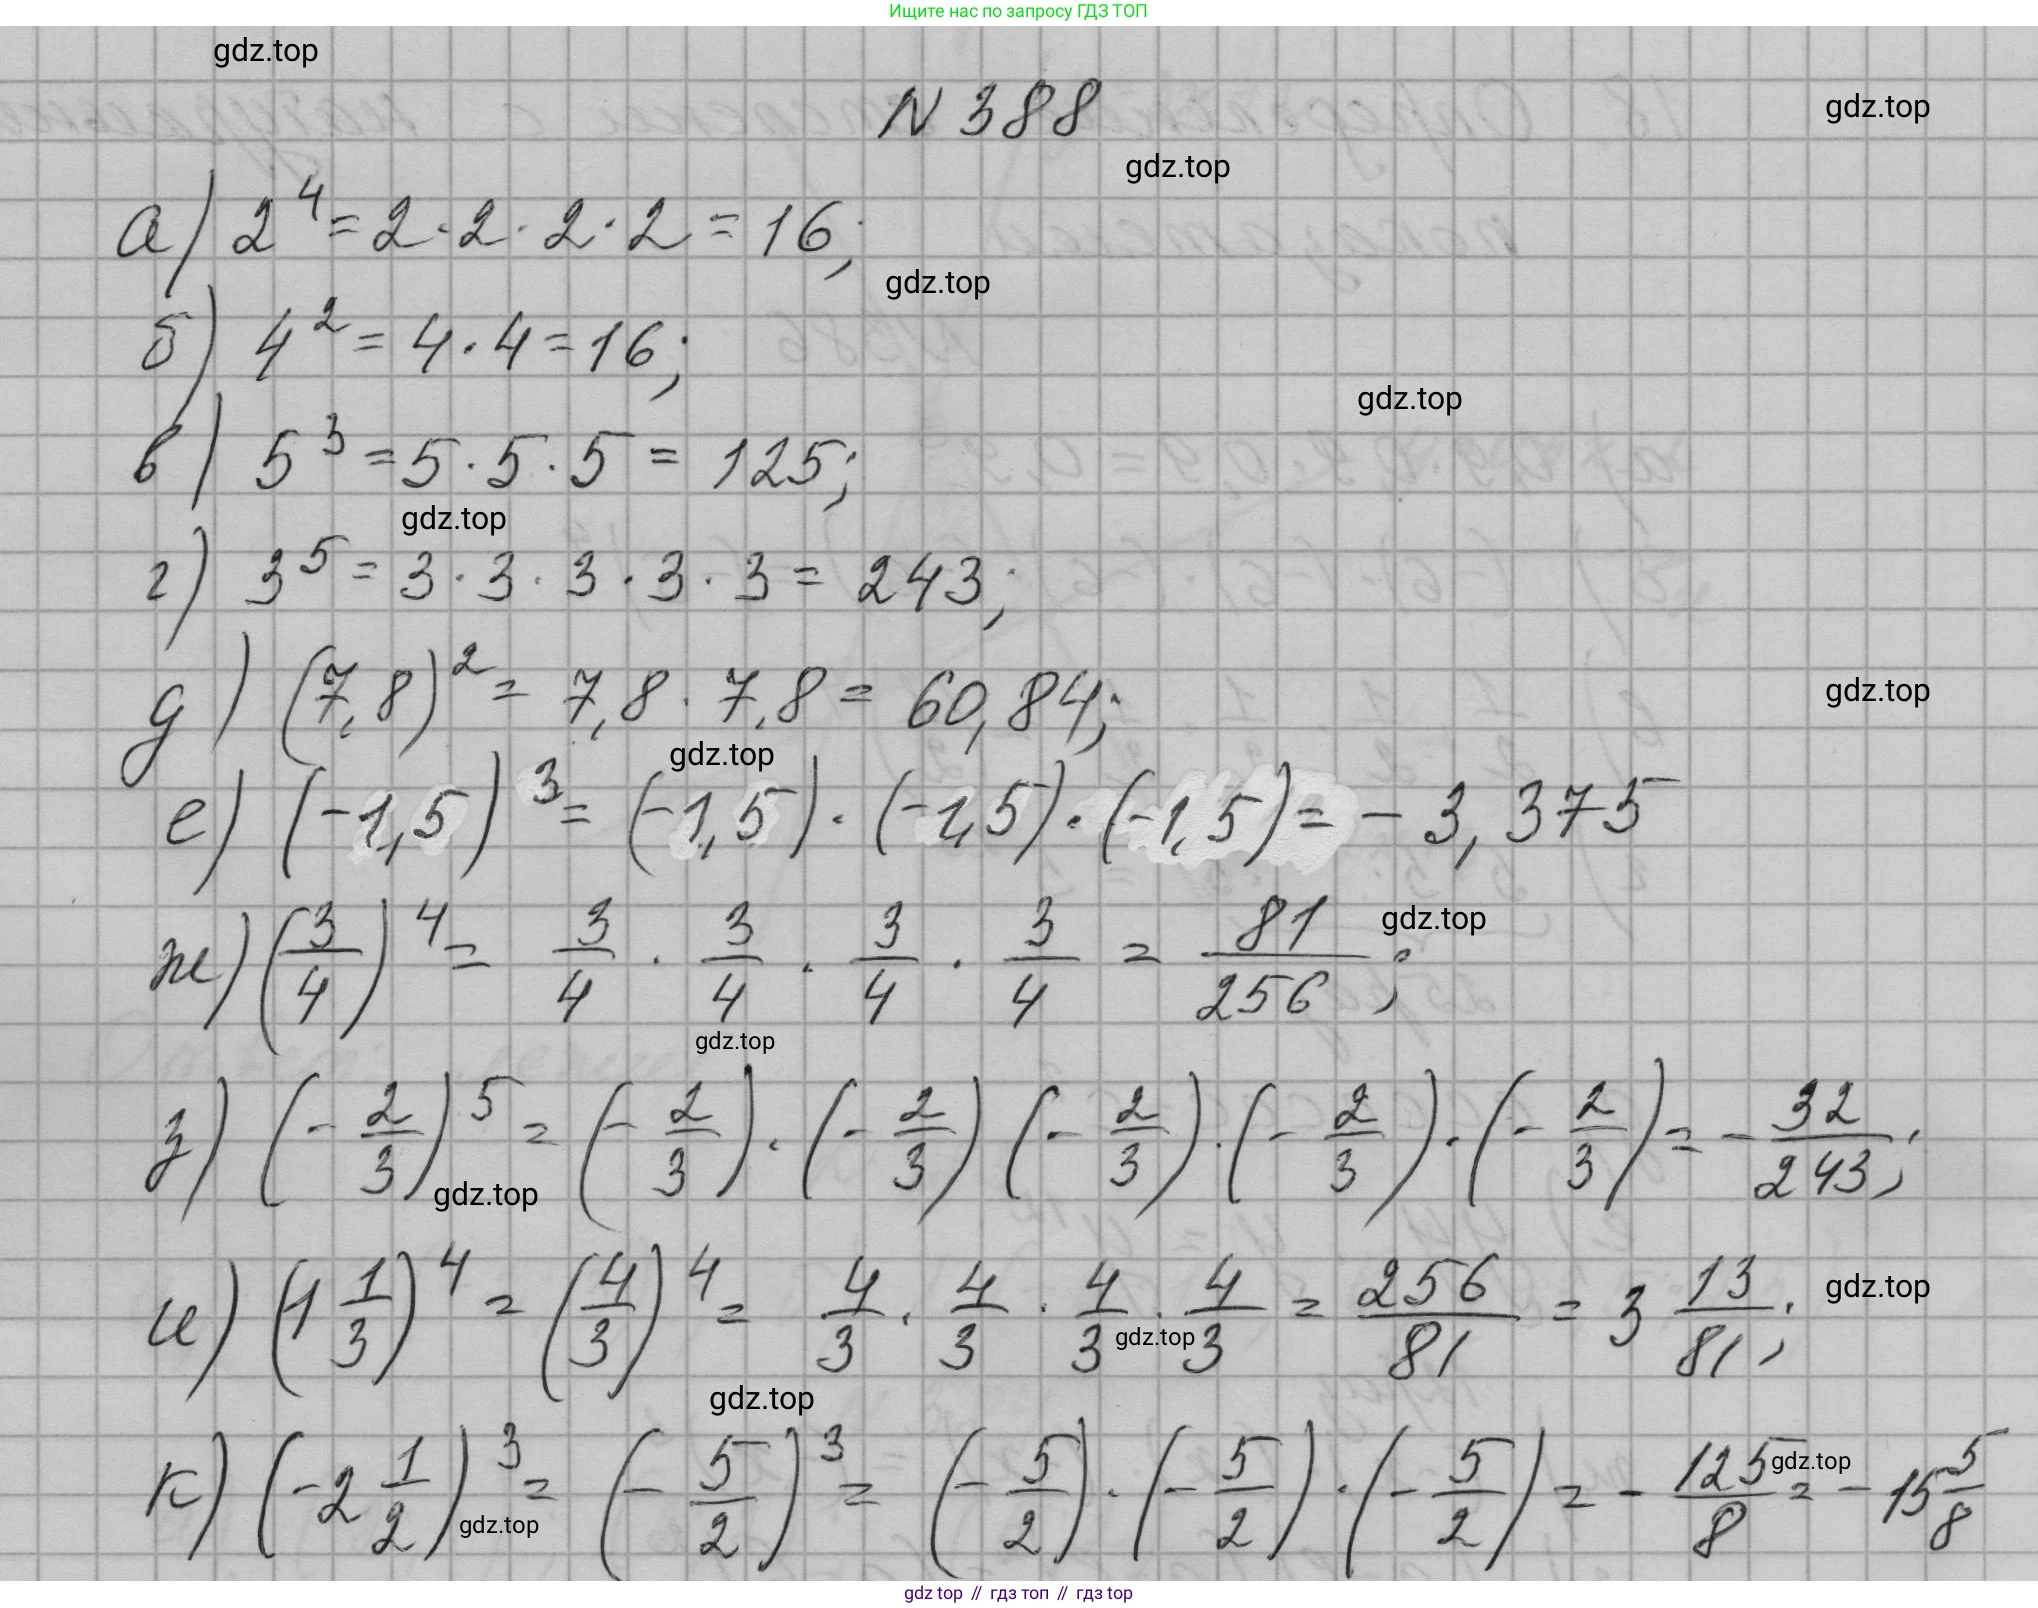 Ищите нас по запросу ГДЗ ТОП
gdz.top
N 388
gdz.top
gdz.top
а) 2⁴ = 2 · 2 · 2 · 2 = 16;
gdz.top
б) 4² = 4 · 4 = 16;
gdz.top
в) 5³ = 5 · 5 · 5 = 125;
gdz.top
г) 3⁵ = 3 · 3 · 3 · 3 · 3 = 243;
д) (7,8)² = 7,8 · 7,8 = 60,84;
gdz.top
gdz.top
е) (-1,5)³ = (-1,5) · (-1,5) · (-1,5) = -3,375
ж) (3/4)⁴ = 3/4 · 3/4 · 3/4 · 3/4 = 81/256;
gdz.top
gdz.top
з) (-2/3)⁵ = (-2/3) · (-2/3) (-2/3) · (-2/3) · (-2/3) = -32/243;
gdz.top
и) (1 1/3)⁴ = (4/3)⁴ = 4/3 · 4/3 · 4/3 · 4/3 = 256/81 = 3 13/81;
gdz.top
gdz.top
gdz.top
к) (-2 1/2)³ = (-5/2)³ = (-5/2) · (-5/2) · (-5/2) = -125/8 = -15 5/8
gdz.top
gdz.top
gdz top // гдз топ // гдз top